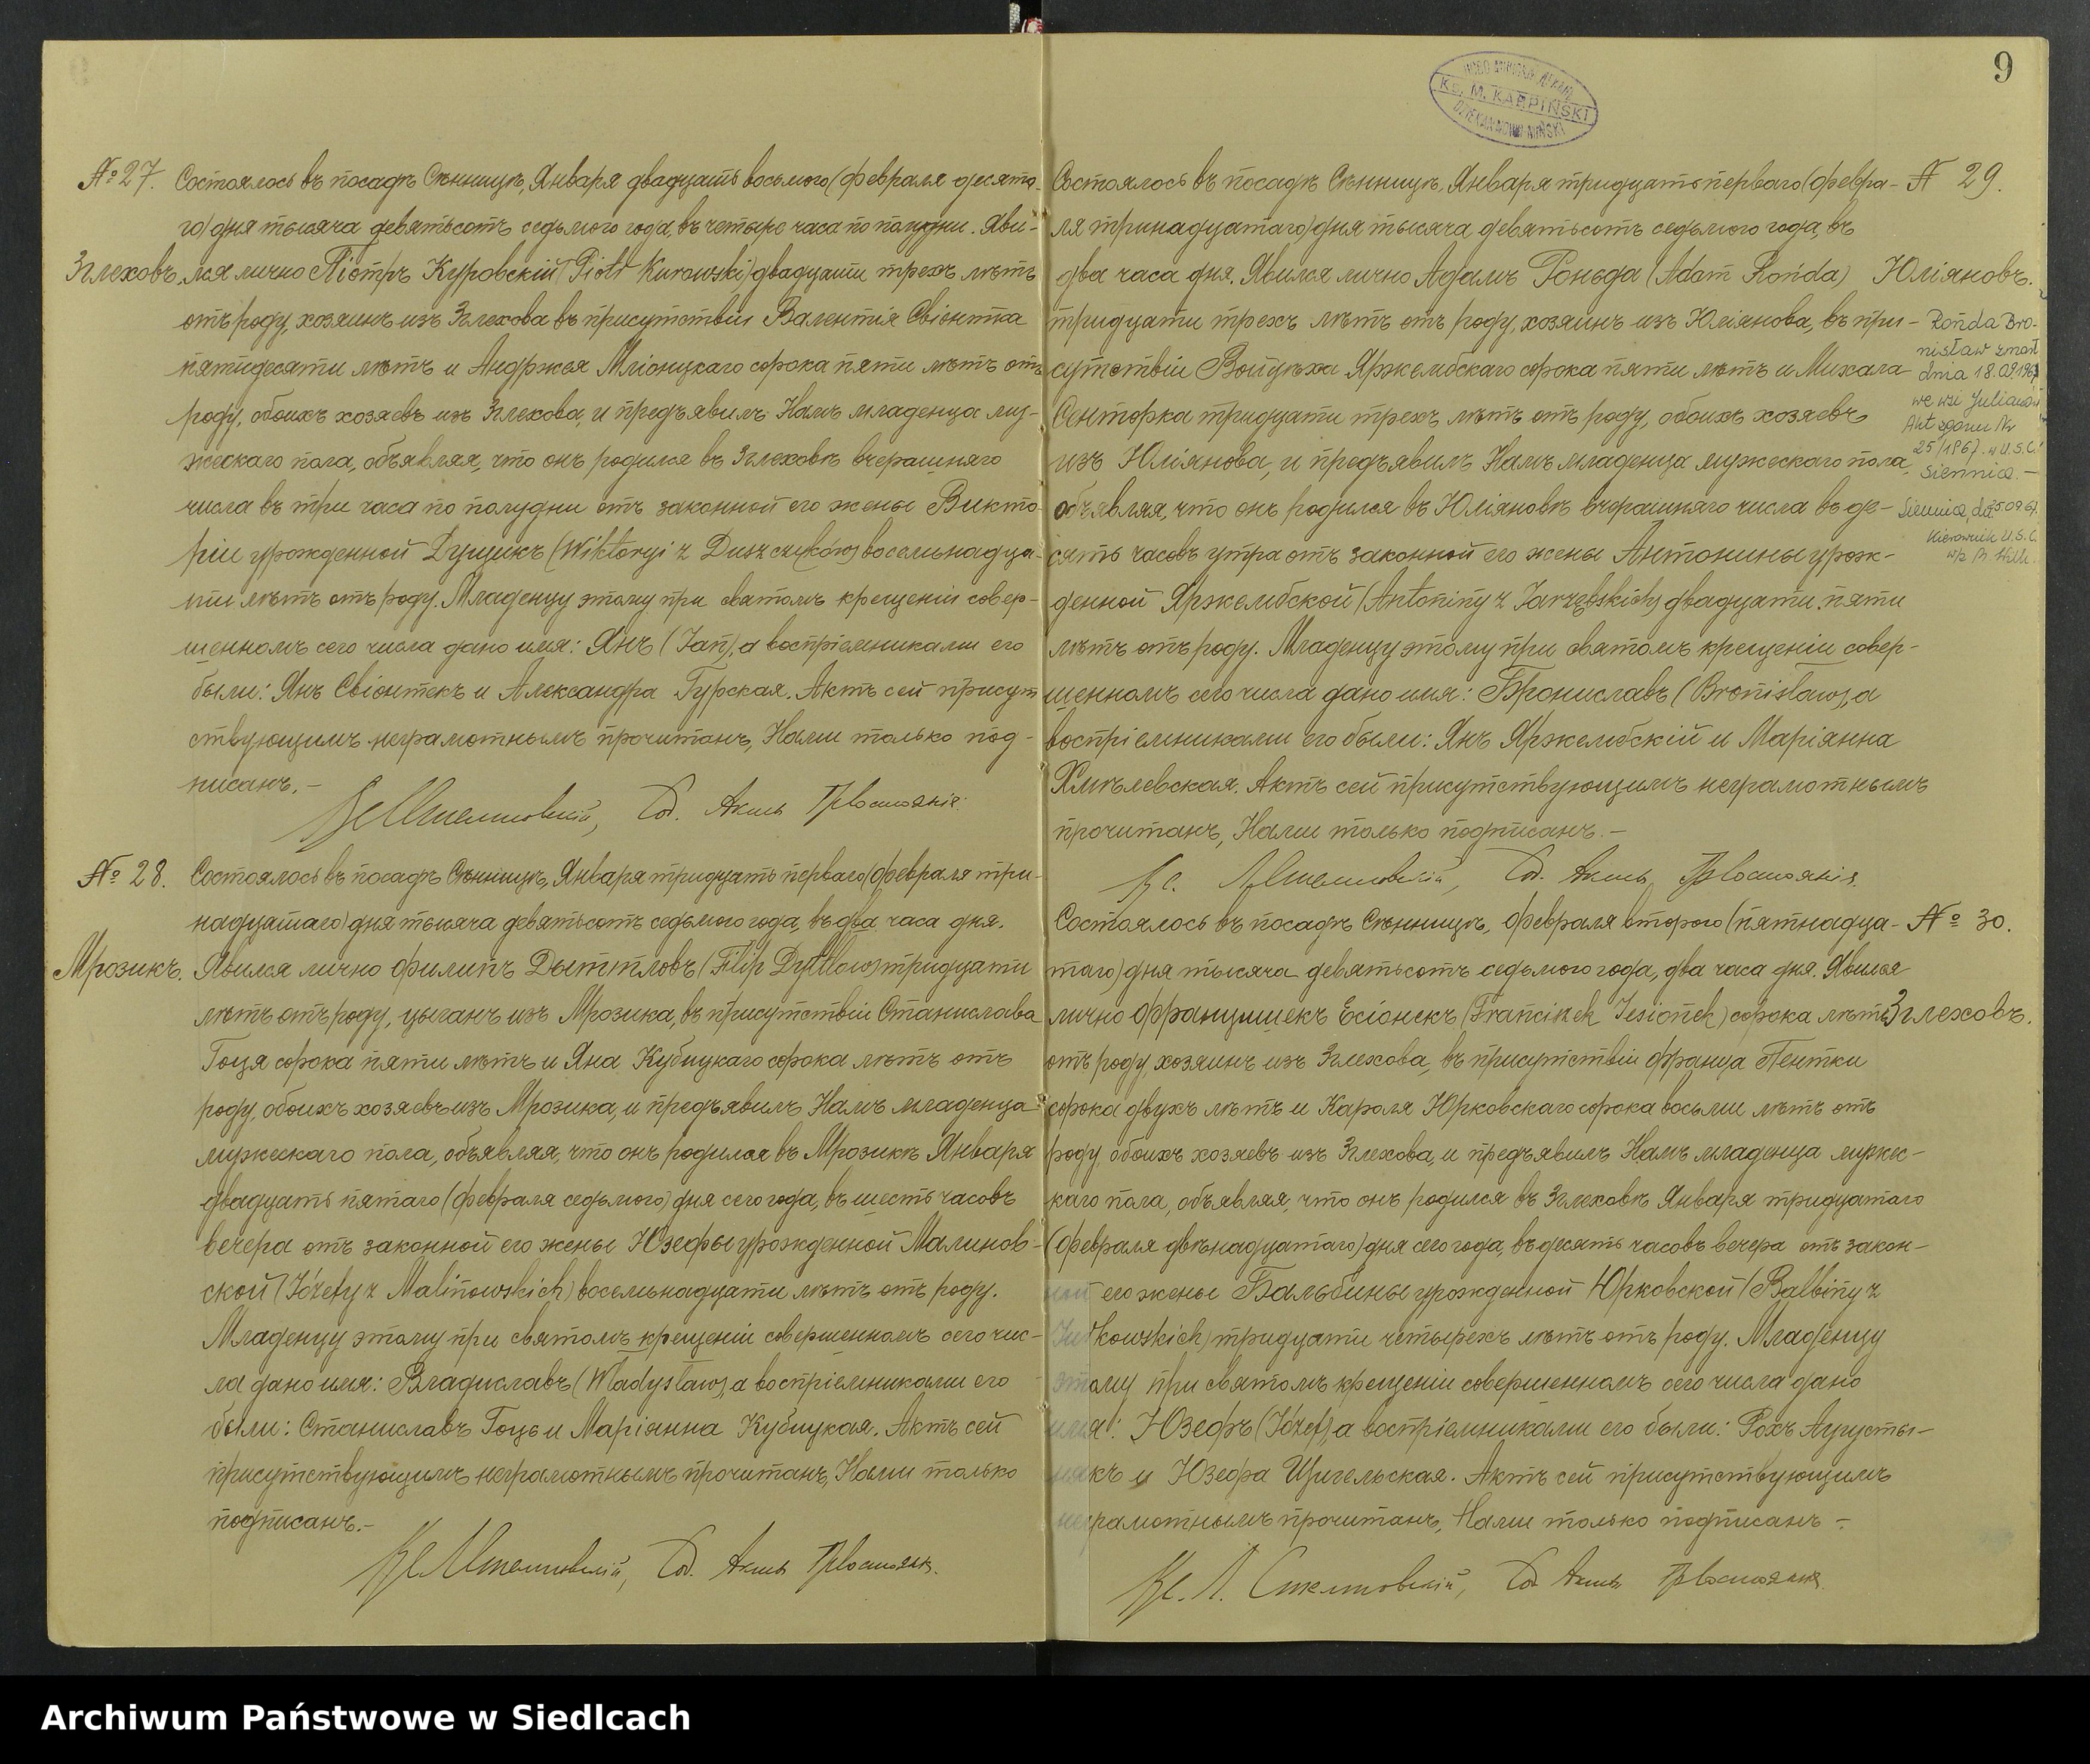 № 27. Состоялось въ посадѣ Сѣнницѣ, Января двадцать восьмого (февраля десята-
го) дня тысяча девятьсотъ седьмого года, въ четыре часа по полудни. Яви-
Зглеховъ. лся лично Піотръ Куровскій (Piotr Kurowski) двадцати трехъ лѣтъ
отъ роду, хозяинъ изъ Зглехова въ присутствіи Валентія Свіонтка
пятидесяти лѣтъ и Андржея Мліоницкаго сорока пяти лѣтъ отъ
роду, обоихъ хозяевъ изъ Зглехова, и предъявилъ Намъ младенца му-
жескаго пола, объявляя, что онъ родился въ Зглеховѣ вчерашняго
числа въ три часа по полудни отъ законной его жены Викто-
ріи урожденной Дущикъ (Wiktoryi z Duszczyków) восемьнадца-
ти лѣтъ отъ роду. Младенцу этому при святомъ крещеніи совер-
шенномъ сего числа дано имя: Янъ (Jan), а воспріемниками его
были: Янъ Свіонтекъ и Александра Гурская. Актъ сей присут-
ствующимъ неграмотнымъ прочитанъ, Нами только под-
писанъ.-
Сод. Акты Гр. Состоянія.
№ 28. Состоялось въ посадѣ Сѣнницѣ, Января тридцать перваго (февраля три-
надцатаго) дня тысяча девятьсотъ седьмого года, въ два часа дня.
Мрозикъ. Явился лично Филипъ Дыттловъ (Filip Dyttlow) тридцати
лѣтъ отъ роду, цыганъ изъ Мрозика, въ присутствіи Станислава
Гоця сорока пяти лѣтъ и Яна Кубицкаго сорока лѣтъ отъ
роду, обоихъ хозяевъ изъ Мрозика, и предъявилъ Намъ младенца
мужескаго пола, объявляя, что онъ родился въ Мрозикѣ Января
двадцать пятаго (февраля седьмого) дня сего года, въ шесть часовъ
вечера отъ законной его жены Юзефы урожденной Малинов-
ской (Józefy z Malinowskich) восемьнадцати лѣтъ отъ роду.
Младенцу этому при святомъ крещеніи совершенномъ сего чис-
ла дано имя: Владиславъ (Władysław), а воспріемниками его
были: Станиславъ Гоць и Маріанна Кубицкая. Актъ сей
присутствующимъ неграмотнымъ прочитанъ, Нами только
подписанъ.-
Сод. Акты Гр. Состоян.
9
KS. M. KARPIŃSKI
DZIEKAN NOWO MIŃSKI
Состоялось въ посадѣ Сѣнницѣ, Января тридцать перваго (февра- № 29.
ля тринадцатаго) дня тысяча девятьсотъ седьмого года, въ
два часа дня. Явился лично Адамъ Роньда (Adam Rońda) Юліяновъ.
тридцати трехъ лѣтъ отъ роду, хозяинъ изъ Юліянова, въ при-
сутствіи Войцѣха Яржембскаго сорока пяти лѣтъ и Михала
Сенторка тридцати трехъ лѣтъ отъ роду, обоихъ хозяевъ
изъ Юліянова, и предъявилъ Намъ младенца мужескаго пола
объявляя, что онъ родился въ Юліяновѣ вчерашняго числа въ де-
сять часовъ утра отъ законной его жены Антонины урож-
денной Яржембской (Antoniny z Jarzębskich) двадцати пяти
лѣтъ отъ роду. Младенцу этому при святомъ крещеніи совер-
шенномъ сего числа дано имя: Брониславъ (Bronisław), а
воспріемниками его были: Янъ Яржембскій и Маріанна
Хмѣлевская. Актъ сей присутствующимъ неграмотнымъ
прочитанъ, Нами только подписанъ.-
Сод. Акты Гр. Состоянія.
Rońda Bro-
nisław zmarł
dnia 18.09.1967
we wsi Julianów
Akt zgonu Nr
25/1967. w U.S.C.
Siennica.-
Siennica, d. 25.09.67.
Kierownik U.S.C.
Состоялось въ посадѣ Сѣнницѣ, февраля второго (пятнадца- № 30.
таго) дня тысяча девятьсотъ седьмого года, два часа дня. Явился
лично Францишекъ Есіонекъ (Franciszek Jesionek) сорока лѣтъ Зглеховъ.
отъ роду, хозяинъ изъ Зглехова, въ присутствіи Франца Пентки
сорока двухъ лѣтъ и Кароля Юрковскаго сорока восьми лѣтъ отъ
роду, обоихъ хозяевъ изъ Зглехова, и предъявилъ Намъ младенца мужес-
каго пола, объявляя, что онъ родился въ Зглеховѣ Января тридцатаго
(февраля двѣнадцатаго) дня сего года, въ десять часовъ вечера отъ закон-
ной его жены Бальбины урожденной Юрковской (Balbiny z
Jurkowskich) тридцати четырехъ лѣтъ отъ роду. Младенцу
этому при святомъ крещеніи совершенномъ сего числа дано
имя: Юзефъ (Józef), а воспріемниками его были: Рохъ Аугусты-
някъ и Юзефа Щигельская. Актъ сей присутствующимъ
неграмотнымъ прочитанъ, Нами только подписанъ-.
Сод. Акты Гр. Состоянія.
Archiwum Państwowe w Siedlcach